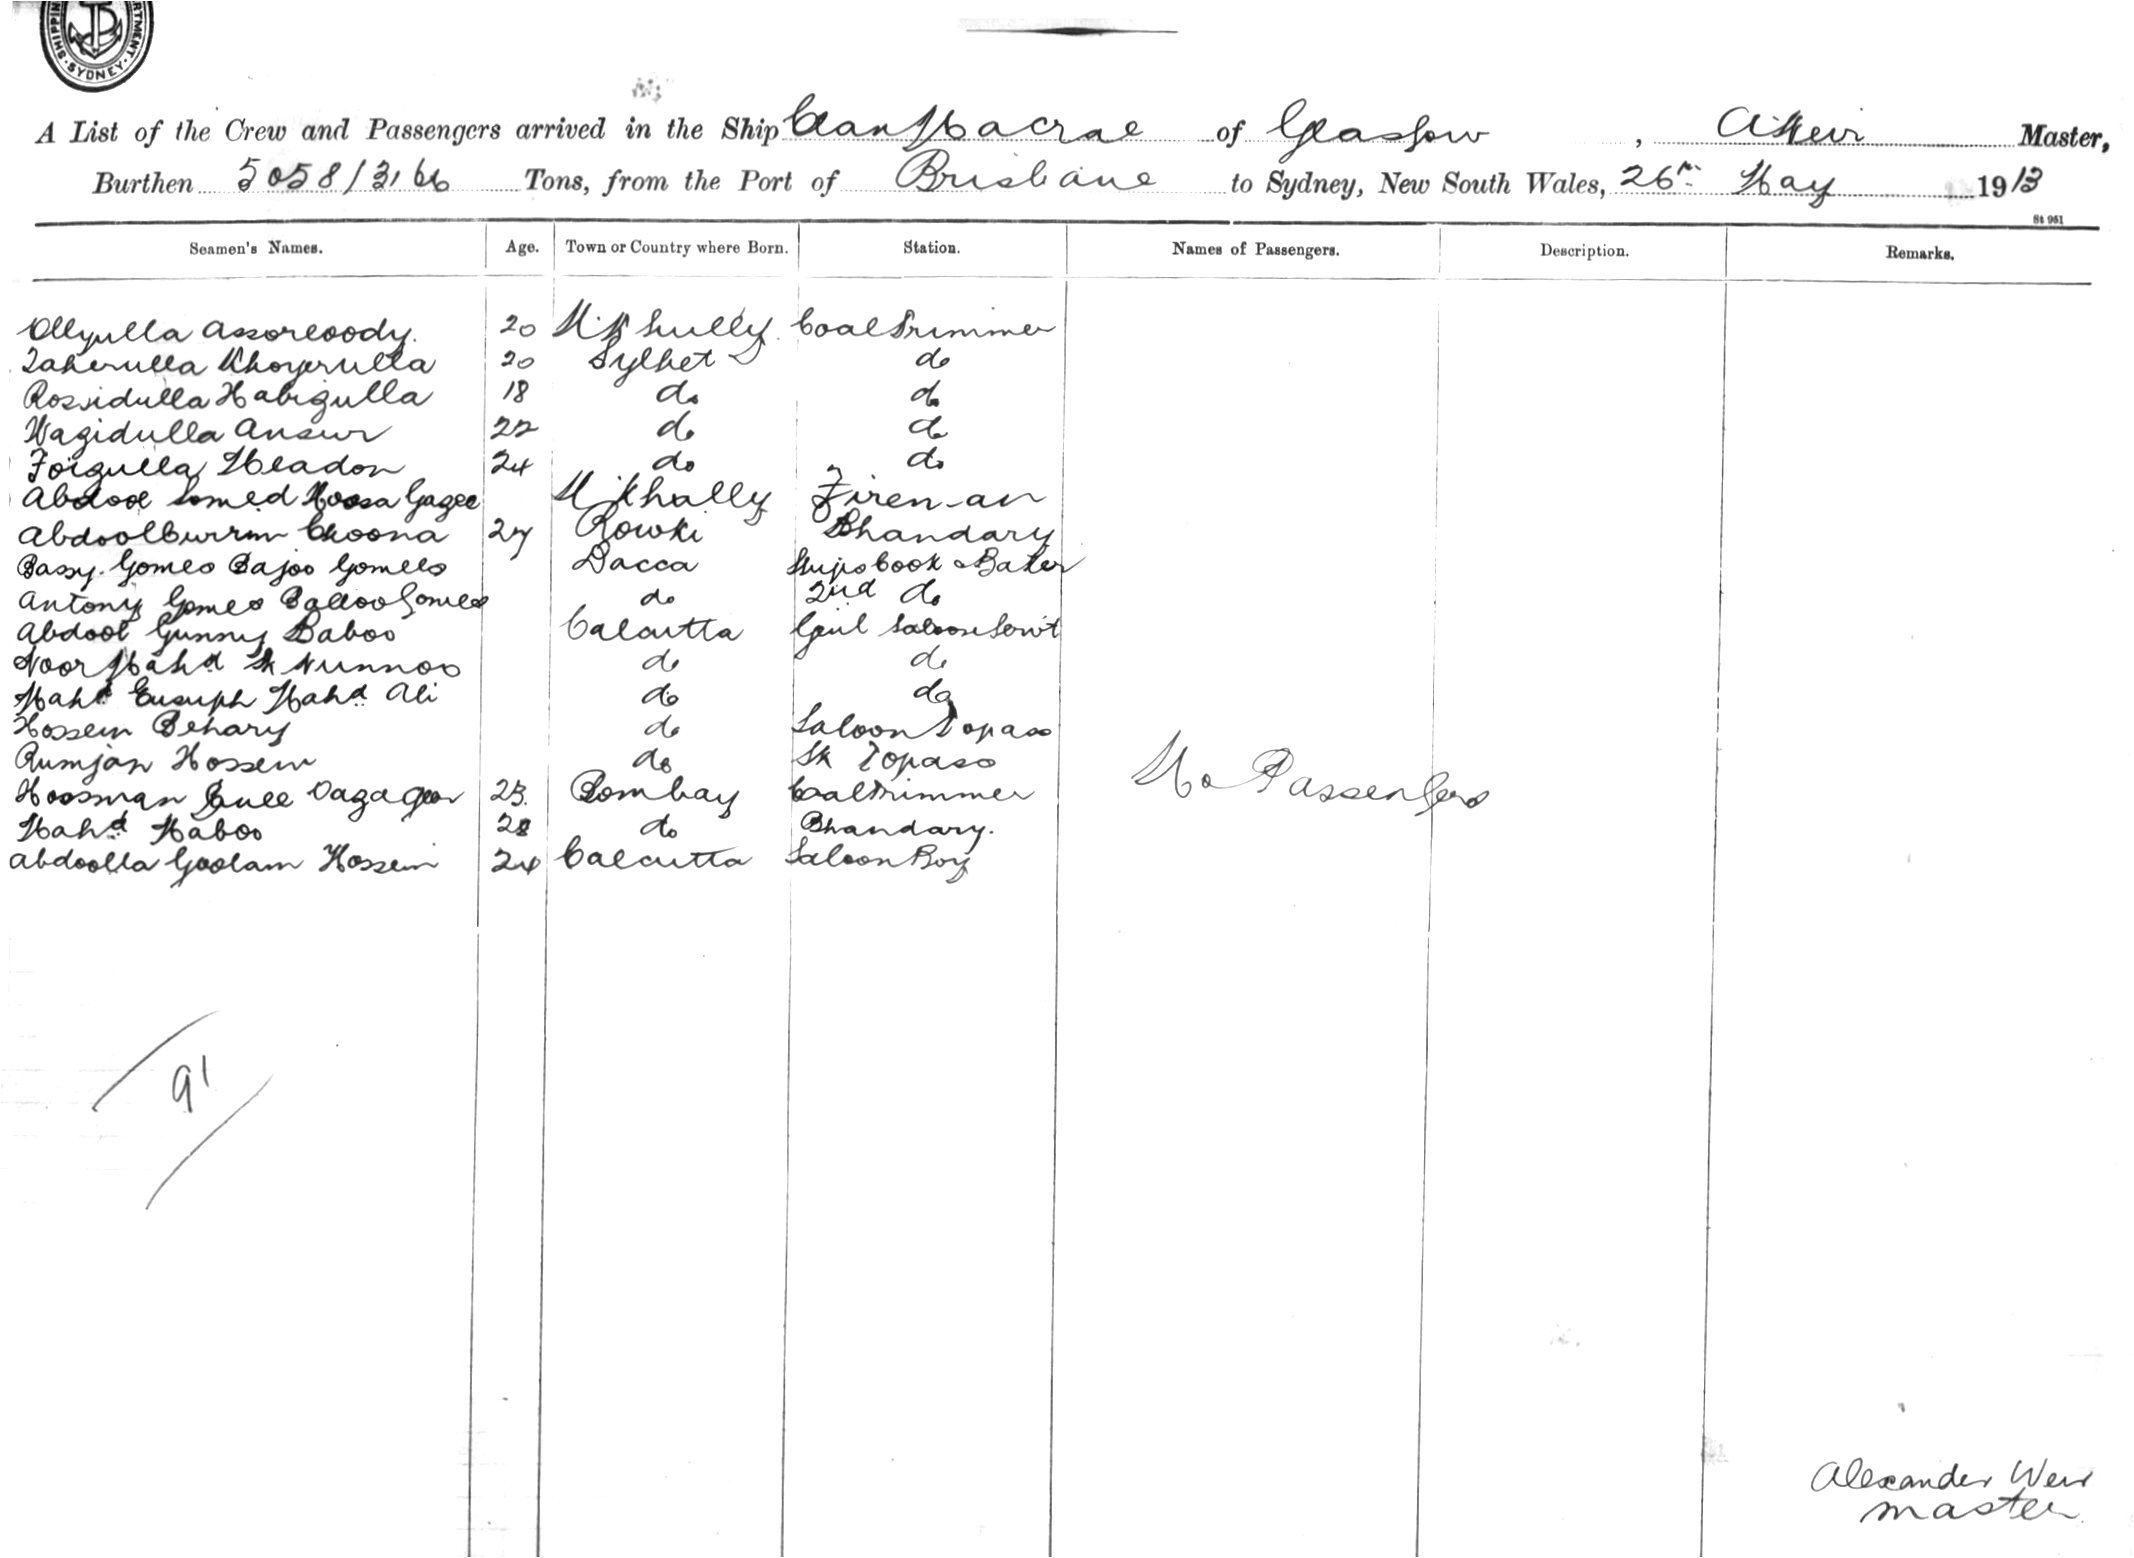 SHIPPIN RTMENT SYDNEY
A List of the Crew and Passengers arrived in the Ship Clan Macrae of Glasgow, A Weir Master,
Burthen 5058/3166 Tons, from the Port of Brisbane to Sydney, New South Wales, 26th May 1913
St 951
Seamen's Names. Age. Town or Country where Born. Station. Names of Passengers. Description. Remarks.
Ollyulla 20 Coal Trimmer
Zaherulla Khoyerulla 20 Sylhet do
Rossidulla Habigulla 18 do do
Wagidulla Ansur 22 do do
Foizulla Meadon 24 do do
Abdool Somed Moosa Gazee Fireman
Choona 27 Bhandary
Bassy Gomes Bajoo Gomes Dacca Ships Cook & Baker
Antony Gomes Balloo Gomes do 2nd do
Abdool Gunny Baboo Calcutta Genl Saloon Servt
Noor Mahd Sk Nunnoo do do
Mahd Eusuph Mahd Ali do do
Hossein Behary do Saloon Topass
Rumjan Hossein do Sk Topass
Hoosman Bombay Coal Trimmer
Mahd Maboo 28 do Bhandary.
Abdoolla Goolam Hossein 24 Calcutta Saloon Boy
No Passengers
91
Alexander Weir
Master